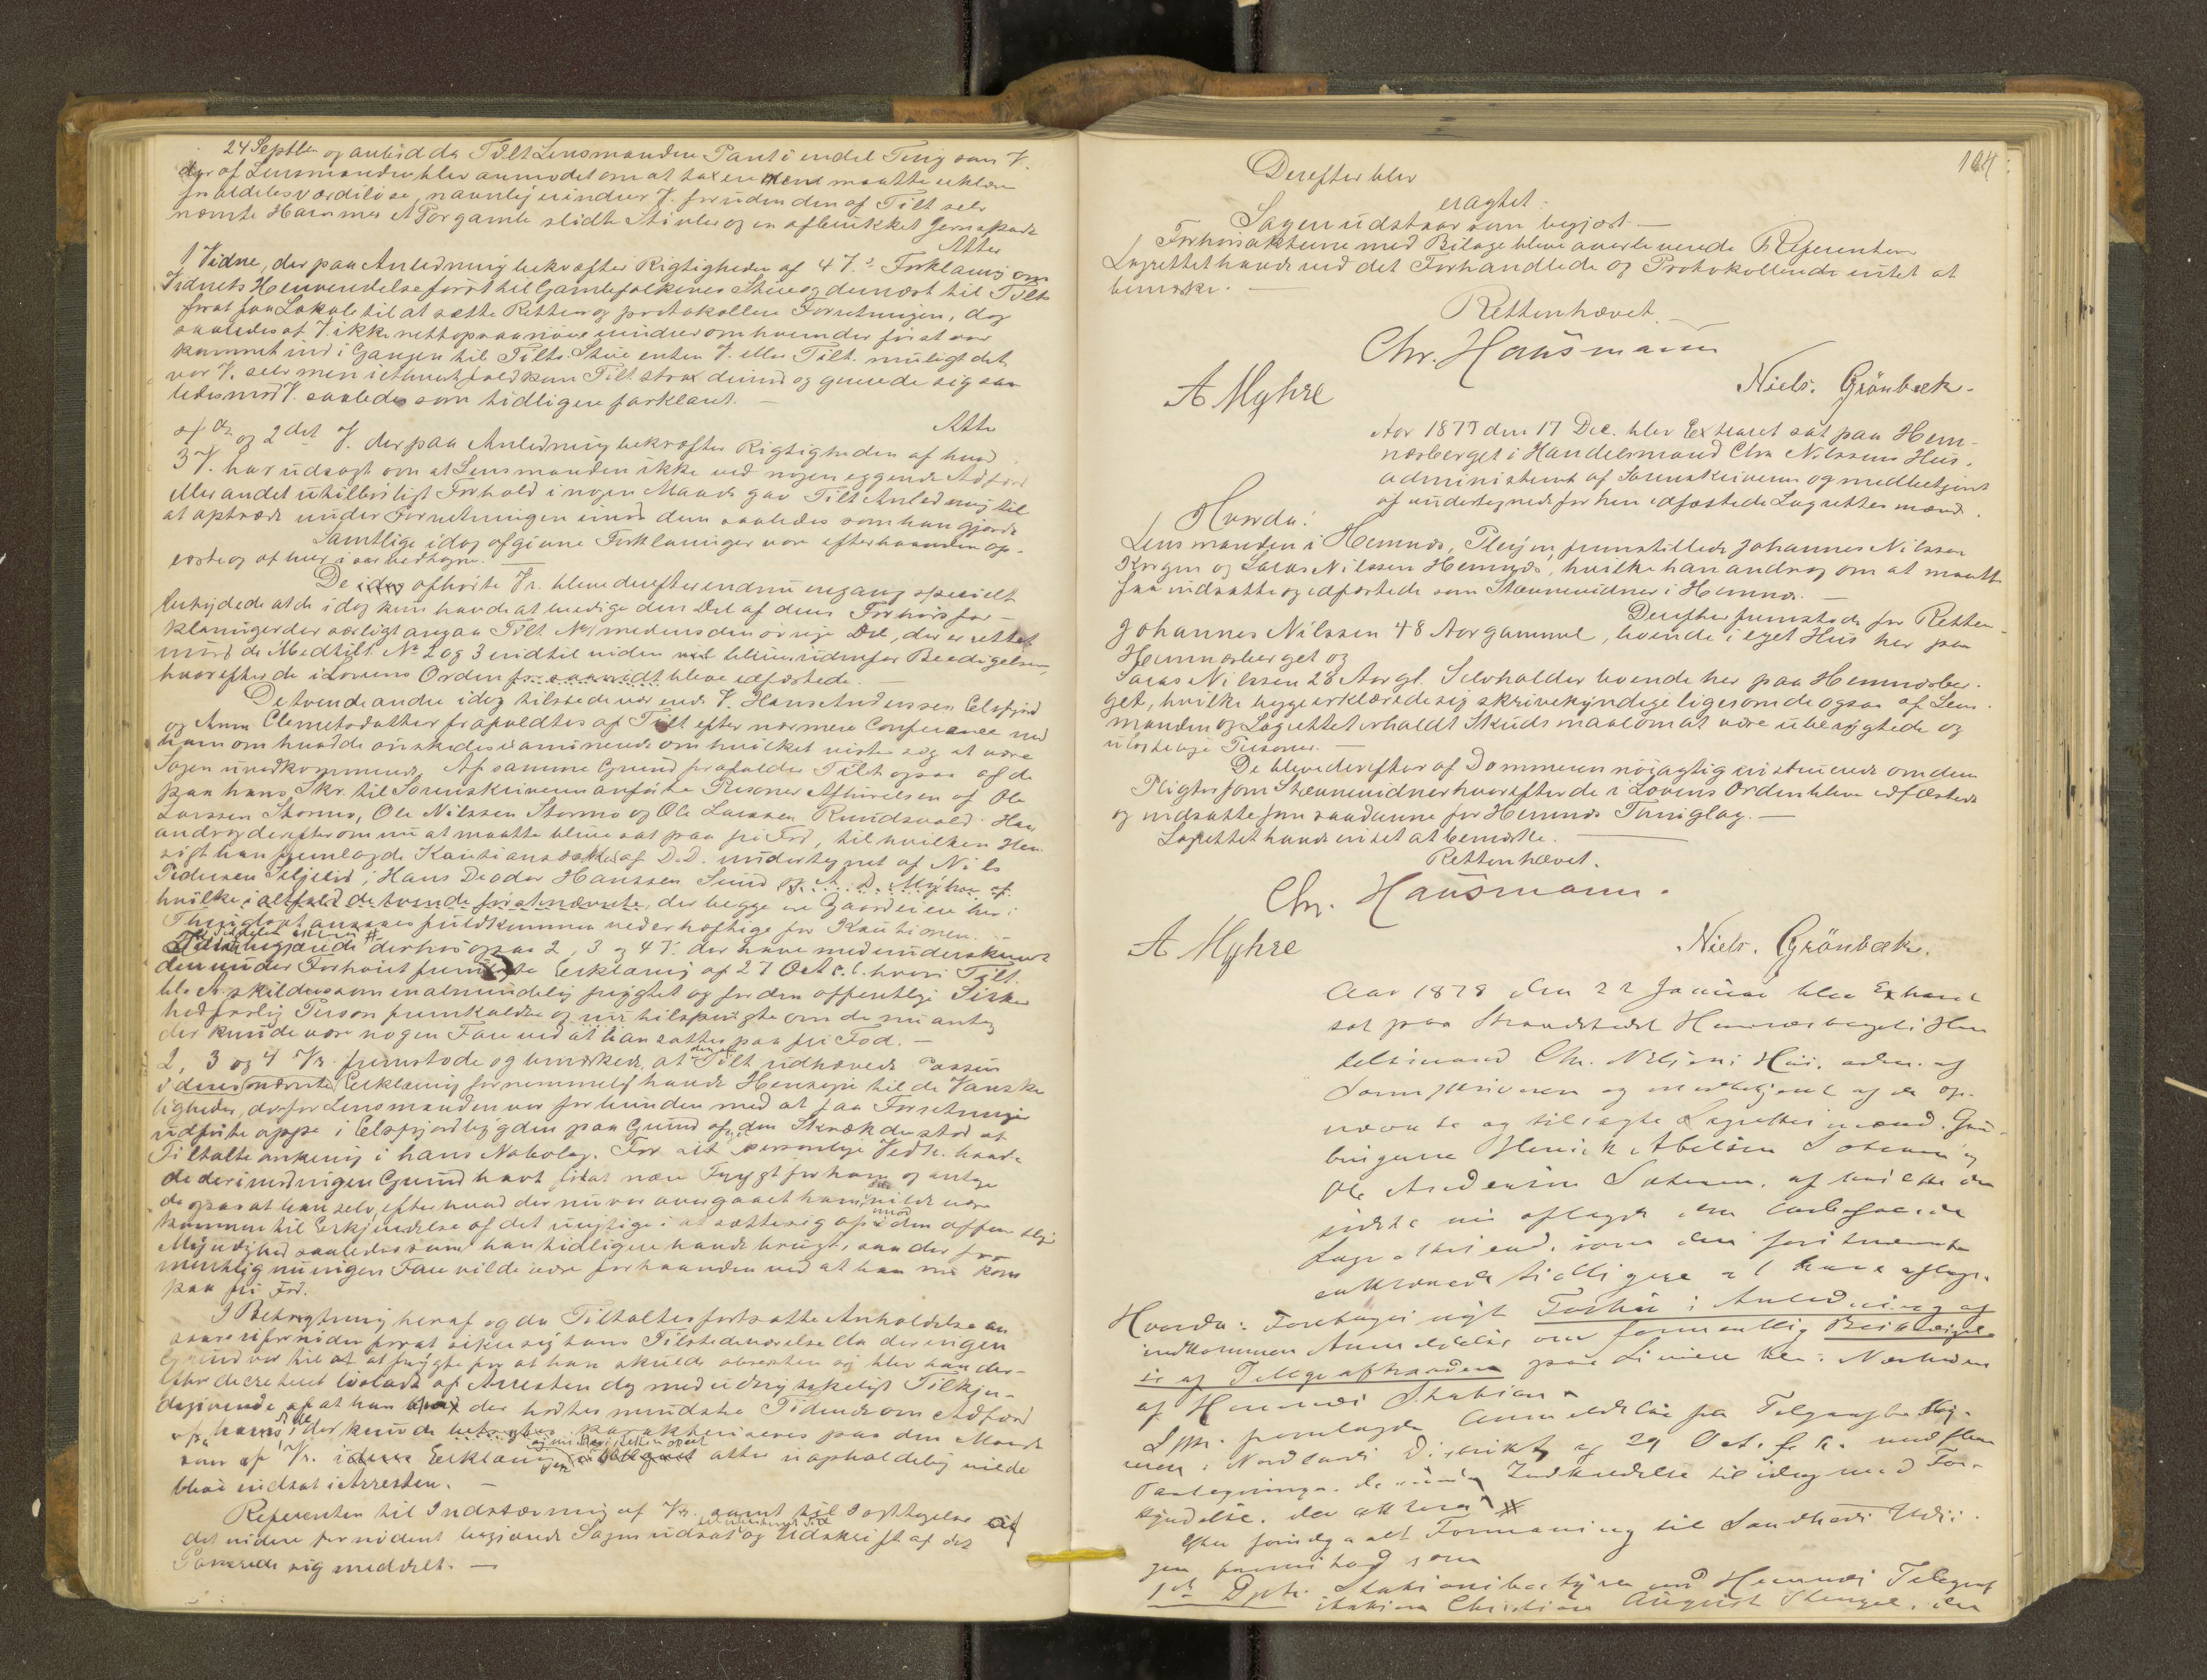 24 Septbr og anbød da Tilt Lensmanden Pant i endel Ting som V.
der af Lensmanden blev anmodet om at taxere dem maatte erklære
for aldeles værdiløse, navnlig erindrer V. foruden den af Tilt selv
nævnte Hammer et Par gamle slidte Støvler og en afbrukket Jernspade
Atter
1 Vidne, der paa Anledning bekræfter Rigtigheden af 4 V.s Forklaring om
Vidnets Henvendelse først til Gamlefolkenes Stue og dernæst til Tilts
for at faa Lokale til at sætte Retten og protokollere Forretningen, dog
saaledes at V. ikke nettop saa nøie erindrer om hvem der først var
kommet ind i Gangen til Tilts. Stue enten V. eller Tilt. muligt det
var V. selv men i ethvert fald kom Tilt strax derind og gerede sig saa
ledes mod V. saaledes som tidligere forklaret. —
Atter
og 2det V. der paa Anledning bekræfter Rigtigheden af hvad
3 V. har udsagt om at Lensmanden ikke ved nogen eggende Adfærd
eller andet utilbørligt Forhold i nogen Maade gav Tilt Anledning til
at optræde under Forretningen imod dem saaledes som han gjorde
Samtlige idag afgivne Forklaringer vare efterhaanden op-
læste og af hver især vedtagne. —
De idag afhørte Vr. bleve derefter endnu engang specielt
betydede at de idag kun havde at beedige den Del af deres Forhørsfor-
klaringer der særligt angaa Tilt No 1 medens den øvrige Del, der er rettet
mod de Medtilt. No 2 og 3 indtil videre bliver udenfor Beedigelsen,
hvorefter de i Lovens Orden for saavidt bleve edfæstede. —
De tvende andre idag tilstedeværende V. Hans Andersen Elsfjord
og Anna Clemetsdatter frafaldtes af Tilt efter nærmere Conferance med
ham om hvad de ønskedes examinerede om hvilket viste sig at være
Sagen uvedkommende. Af samme Grund frafaldes Tilt ogsaa af de
paa hans Skr. til Sorenskriveren anførte Personer Afhørelsen af Ole
Larssen Stormo, Ole Nilssen Stormo og Ole Larssen Rundsvold. Han
androg derefter om nu at maatte blive sat paa fri Fod, til hvilken Hen
sigt han fremlagde Kautionsakt af D.D. undertegnet af Nils
Pedersen, Hans Deodor Hanssen Sund og A. D. Myhre af
hvilke ialtfald de tvende førstnævnte, der begge ere Gaardeiere her i
Thinglaget ansees fuldkommen vederhæftige for Kautionen.
derhos ogsaa 2, 3 og 4 V. der have medunderskrevet
den under Forhøret fremlagte Erklæring af 27 Oct. f.A. hvori Tilt.
skildres som en almindelig frygtet og for den offentlige Sikker
hed farlig Person fremkaldte og nu tilspurgte om de nu antog
der kunde være nogen Fare ved at han sattes paa fri Fod. —
2, 3 og 4 Vr. fremstode og bemærkede, at den af Tilt udhævede Passus
i deres nævnte Erklæring fornemmelig havde Hensyn til de Vanske
ligheder, derfor Lensmanden var forbunden med at faa Forretninger
udførte oppe i Elsfjordbygden paa Grund af den Skræk der stod af
Tiltaltes ankring i hans Nabolag. For sit personlige Vedk. havde
de derimod ingen Grund havt til at nære Frygt for ham og antage
de ogsaa at han selv, efter hvad der nu var overgaaet ham, vilde være
kommen til Erkjendelse af det urigtige i at sætte sig op imod den offentlige
Myndighed saaledes som han tidligere havde brugt, saa der for
mentlig nu ingen Fare vilde være forhaanden ved at han nu kom
paa fri Fod.
I Betragtning heraf og da Tiltaltes fortsatte Anholdelse an
saaes ufornøden for at sikre sig hans Tilstedeværelse da der ingen
Grund var til at frygte for at han skulde absentere sig blev han der-
efter decreteret løsladt af Arresten dog med udtrykkeligt Tilkjen-
degivende af at han der hørtes mindste Tidende om Adfærd
fra hans Side der kunde karakteriseres paa den Maade
som af Vr. i deres Erklæring atter uopholdelig vilde
blive indsat i Arresten. —
Referenten til Indstævning af Vr. samt til Iagttagelse af
det videre fornødent begjærede Sagen udsat og Udskrift af det
Passerede sig meddelt. —
104
Derefter blev
eragtet:
Sagen udstaar som begjært. —
Forhørsakterne med Bilage bleve overleverede Referenten
Lagrettet havde ved det Forhandlede og Protokollerede intet at
bemærke. —
Retten hævet.
Chr. Hausmann
A Myhre
Niels. Grönbæk.
Aar 1877 den 17 Dec. blev Extraret sat paa Hem-
næsberget i Handelsmand Chr. Nilssens Hus,
administreret af Sorenskriveren og medbetjent
af undertegnede før hen edfæstede Lagrettesmænd.
Hvorda:
Lensmanden i Hemnæs, Pleijm, fremstillede Johannes Nilssen
Korgen og Lucas Nilssen Hemnæs, hvilke han androg om at maatte
faa indsatte og edfæstede som Stævnevidner i Hemnæs. —
Derefter fremstode for Retten
Johannes Nilssen 48 Aar gammel, boende i eget Hus her paa
Hemnæsberget og
Lucas Nilssen 28 Aar gl. Selvholder boende her paa Hemnæsber-
get, hvilke begge erklærede sig skrivekyndige ligesom de ogsaa af Lens-
manden og Lagrettet erholdt Skudsmaal om at være uberygtede og
ulastelige Personer. —
De bleve derefter af Dommeren nøiagtig instruerede om deres
Pligter som Stævnevidner hvorefter de i Lovens Orden bleve edfæstede
og indsatte som saadanne for Hemnæs Thinglag. —
Lagrettet havde intet at bemærke. —
Retten hævet.
Chr. Hausmann.
A Myhre
Niels. Grönbæk.
Aar 1878 den 22 Januar blev Extraret
sat paa Strandstedet Hemnæsberget i Han
delsmand Chr. Nilsens Hus, adm. af
Sorenskriveren og medbetjent af de op-
nævnte og tilsagte Lagrettesmænd. Gaard-
brugerne Henrik Abelsen og
Ole Andersen, af hvilke den
sidste nu aflagde den lovbefalede
Lagrettesed, som den førstnævnte
erklærede tidligere at have aflagt.
Hvorda: Foretages nyt Forhør i Anledning af
indkommen Anmeldelse om formentlig Beskadigel-
se af Telegraftraaden paa Linien her i Nærheden
af Hemnæs Station.
Dom. fremlagde Anmeldelse fra Telegrafbesty-
reren i Nordlands Distrikt af 29 Oct. f. A. med flere
Paategninger Indkaldelse til idag med For-
kyndelse, der
Efter foregaaet Formaning til Sandheds Udsi-
gen fremstod som
1st Dpt. Stationsbestyrer ved Hemnæs Telegraf
station Christian August Stengel, den